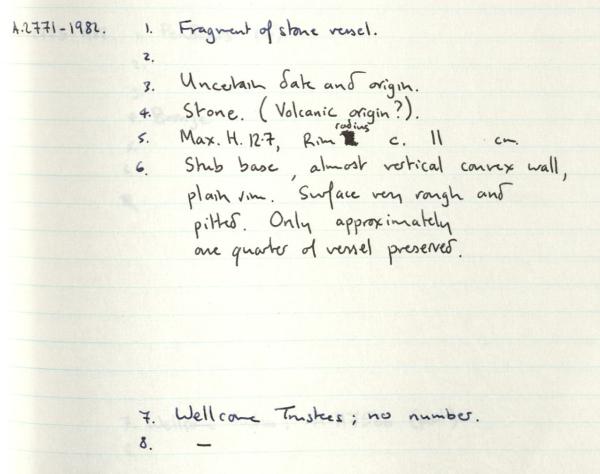 A.2771-1982. 1. Fragment of stone vessel.
2.
3. Uncertain date and origin.
4. Stone. (Volcanic origin?).
5. Max. H. 12.7, Rim radius c. 11 cm.
6. Stub base, almost vertical convex wall,
plain rim. Surface very rough and
pitted. Only approximately
one quarter of vessel preserved.
7. Wellcome Trustees; no number.
8. —